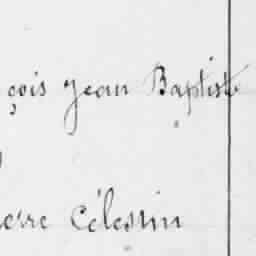 çois Jean Baptiste
erre Célestin